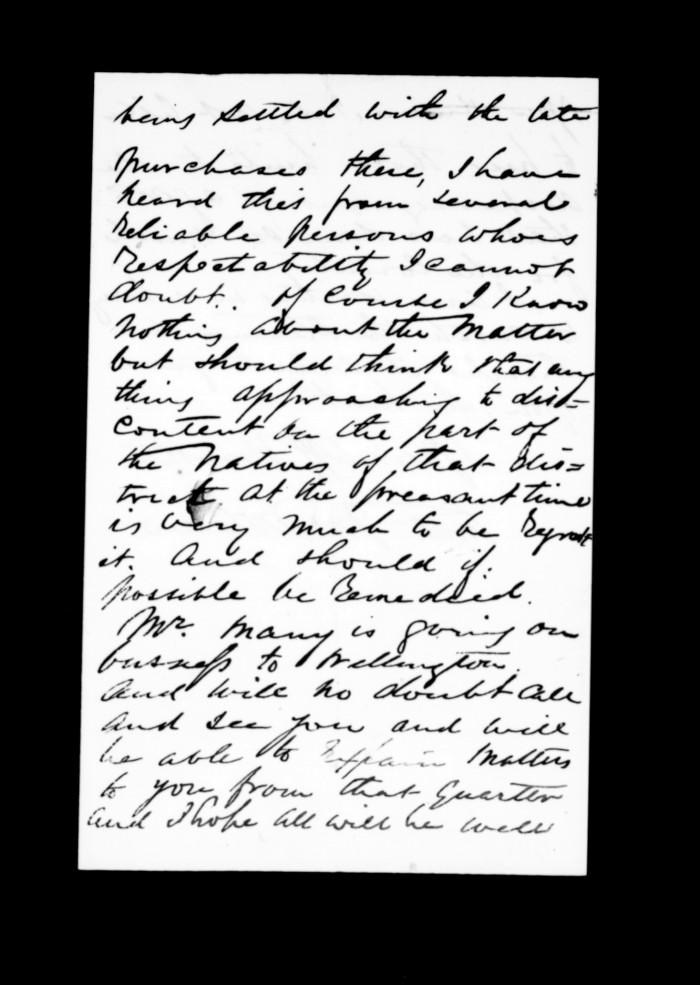 being settled with the late
purchases there, I have
heard this from several
reliable persons whoes
respectability I cannot
doubt. Of Course I Know
nothing about the Matter
but should think that any
thing approaching to dis=
content on the part of
the Natives of that dis=
trict at the preasant time
is very much to be
it. And should if
possible be Remedied.
Mr. Many is going on
to Wellington.
And will no doubt Call
and see you and will
be able to Explain Matters
to you from that Quarter
and I hope all will be well